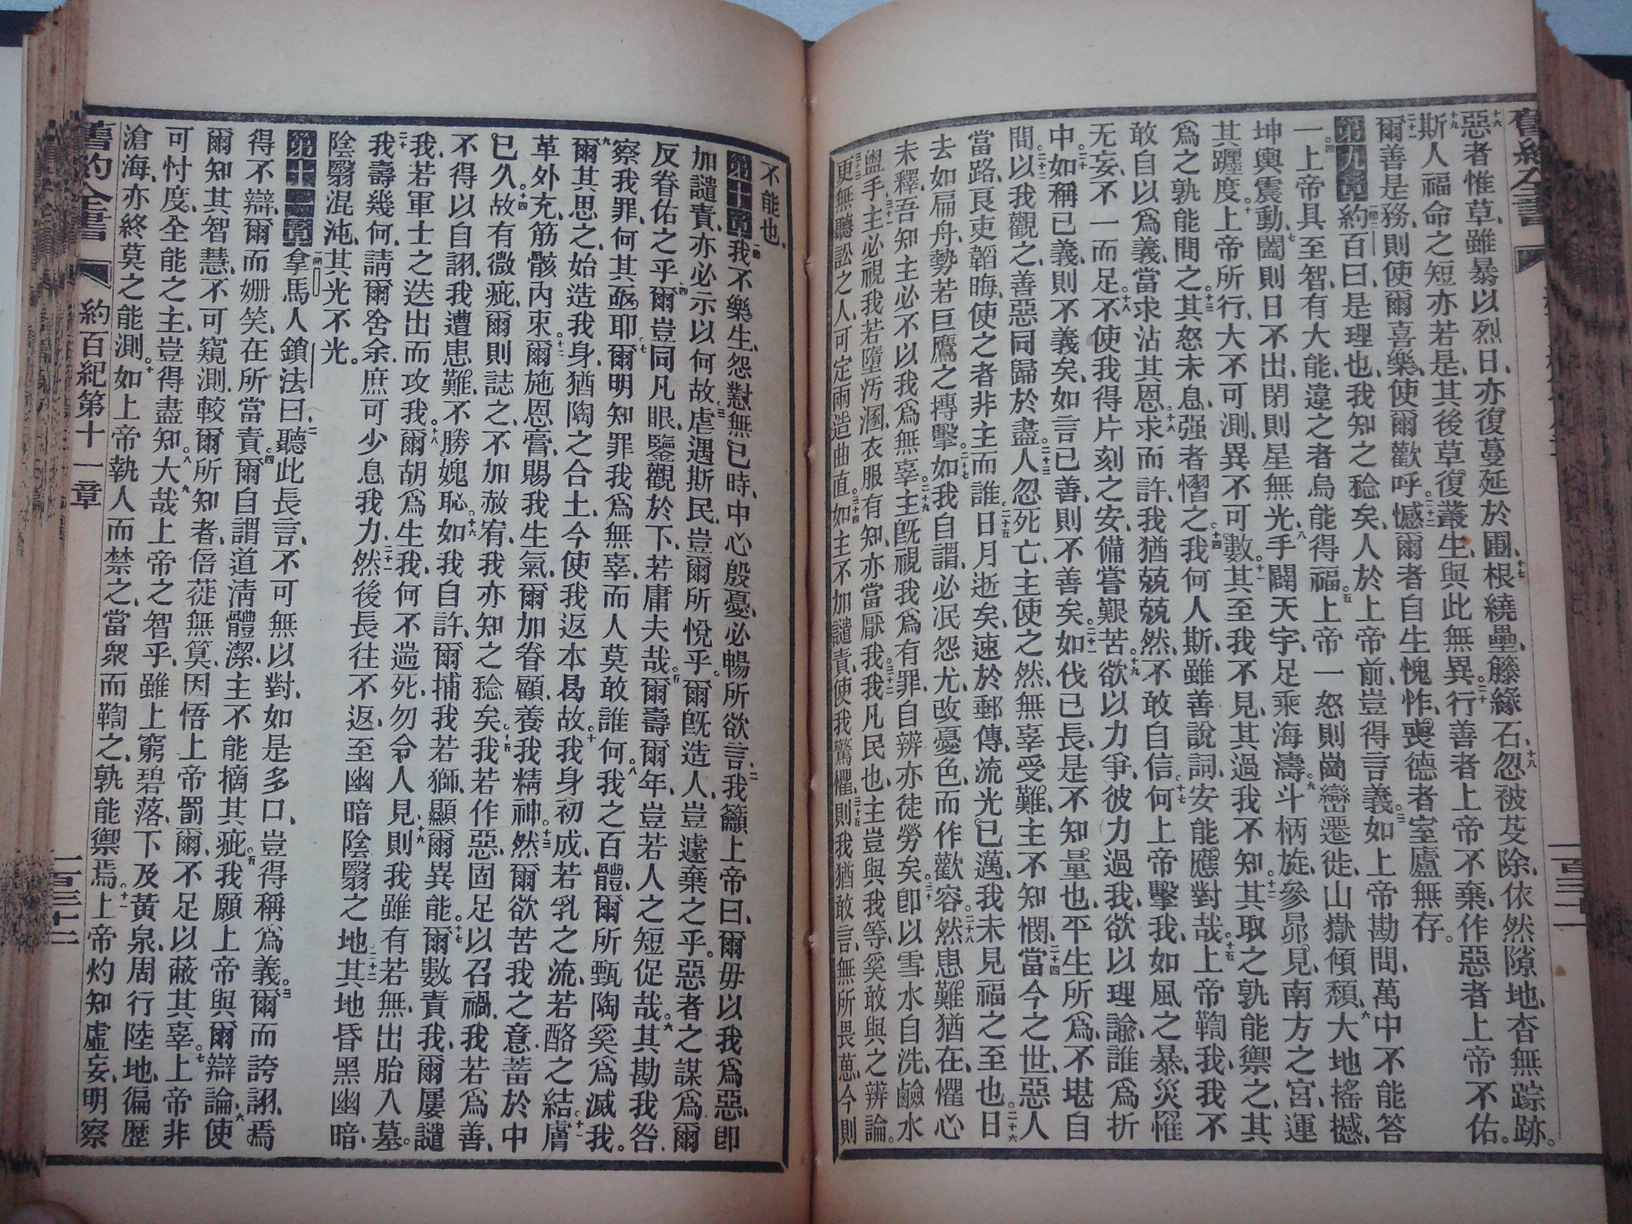 惡者惟草、雖暴以烈日、亦復蔓延於圃、根繞壘、籐緣石、忽被芟除、依然隙地、杳無踪跡。
斯人福命之短亦若是、其後草復叢生、與此無異、行善者上帝不棄、作惡者上帝不佑。
爾善是務、則使爾喜樂、使爾歡呼、憾爾者自生愧怍、喪德者室廬無存。
第九章 約百曰、是理也、我知之稔矣、人於上帝前、豈得言義、如上帝勘問、萬中不能答
一。上帝具至智、有大能、違之者、烏能得福、上帝一怒、則崗巒遷徙、山嶽傾頹、大地搖撼、
坤輿震動、闔則日不出、閉則星無光、手闢天宇、足乘海濤、斗柄旋、參昴見、南方之宮、運
其躔度、上帝所行、大不可測、異不可數、其至我不見、其過我不知、其取之、孰能禦之、其
爲之、孰能問之、其怒未息、强者慴之、我何人斯、雖善說詞、安能應對哉、上帝鞫我、我不
敢自以爲義、當求沾其恩、求而許、我猶兢兢然、不敢自信、何上帝擊我、如風之暴、災罹
無妄、不一而足、不使我得片刻之安、備嘗艱苦、欲以力爭、彼力過我、欲以理諭、誰爲折
中、如稱已義、則不義矣、如言已善、則不善矣、如伐已長、是不知量也、平生所爲、不堪自
問、以我觀之、善惡同歸於盡、人忽死亡、主使之然、無辜受難、主不知憫、當今之世、惡人
當路、良吏韜晦、使之者非主而誰、日月逝矣、速於郵傳、流光已邁、我未見福之至也、日
去如扁舟、勢若巨鷹之搏擊、如我自謂、必泯怨尤、改憂色而作歡容、然患難猶在、懼心
未釋、吾知主必不以我爲無辜、主旣視我爲有罪、自辨亦徒勞矣、卽以雪水自洗、鹼水
盥手、主必視我若墮汚溷、衣服有知、亦當厭我、我凡民也、主豈與我等、奚敢與之辨論。
更無聽訟之人、可定兩造曲直、如主不加譴責、使我驚懼、則我猶敢言、無所畏葸、今則
不能也、
第十章 我不樂生、怨懟無已時、中心殷憂、必暢所欲言、我籲上帝曰、爾毋以我爲惡、卽
加譴責、亦必示以何故、虐遇斯民、豈爾所悅乎。爾旣造人、豈遽棄之乎。惡者之謀、爲爾
反眷佑之乎、爾豈同凡眼、鑒觀於下、若庸夫哉、爾壽爾年、豈若人之短促哉。其勘我咎、
察我罪、何其亟耶、爾明知罪我爲無辜、而人莫敢誰何、我之百體、爾所甄陶、奚爲滅我。
爾其思之、始造我身、猶陶之合土、今使我返本、曷故、我身初成、若乳之流、若酪之結、膚
革外充、筋骸內束、爾施恩嘗、賜我生氣、爾加眷顧、養我精神。然爾欲苦我之意、蓄於中
已久、故有微疵、爾則誌之、不加赦宥、我亦知之稔矣、我若作惡、固足以召禍、我若爲善、
不得以自詡、我遭患難、不勝媿恥、如我自許、爾捕我若獅、顯爾異能、爾數責我、爾屢譴
我、若軍士之迭出而攻我、爾胡爲生我、何不遄死、勿令人見、則我雖有若無、出胎入墓。
我壽幾何、請爾舍余、庶可少息我力、然後長往不返、至幽暗陰翳之地、其地昏黑幽暗、
陰翳混沌、其光不光。
第十一章 拿馬人鎖法曰、聽此長言、不可無以對、如是多口、豈得稱爲義。爾而誇詡、焉
得不辯、爾而姍笑、在所當責、爾自謂道淸體潔、主不能摘其疵、我願上帝與爾辯論、使
爾知其智慧、不可窺測、較爾所知者、倍蓰無算、因悟上帝罰爾、不足以蔽其辜、上帝非
可忖度、全能之主、豈得盡知、大哉上帝之智乎、雖上窮碧落、下及黃泉、周行陸地、徧歷
滄海、亦終莫之能測、如上帝執人而禁之、當衆而鞫之、孰能禦焉、上帝灼知虛妄、明察
舊約全書 約百紀第十一章